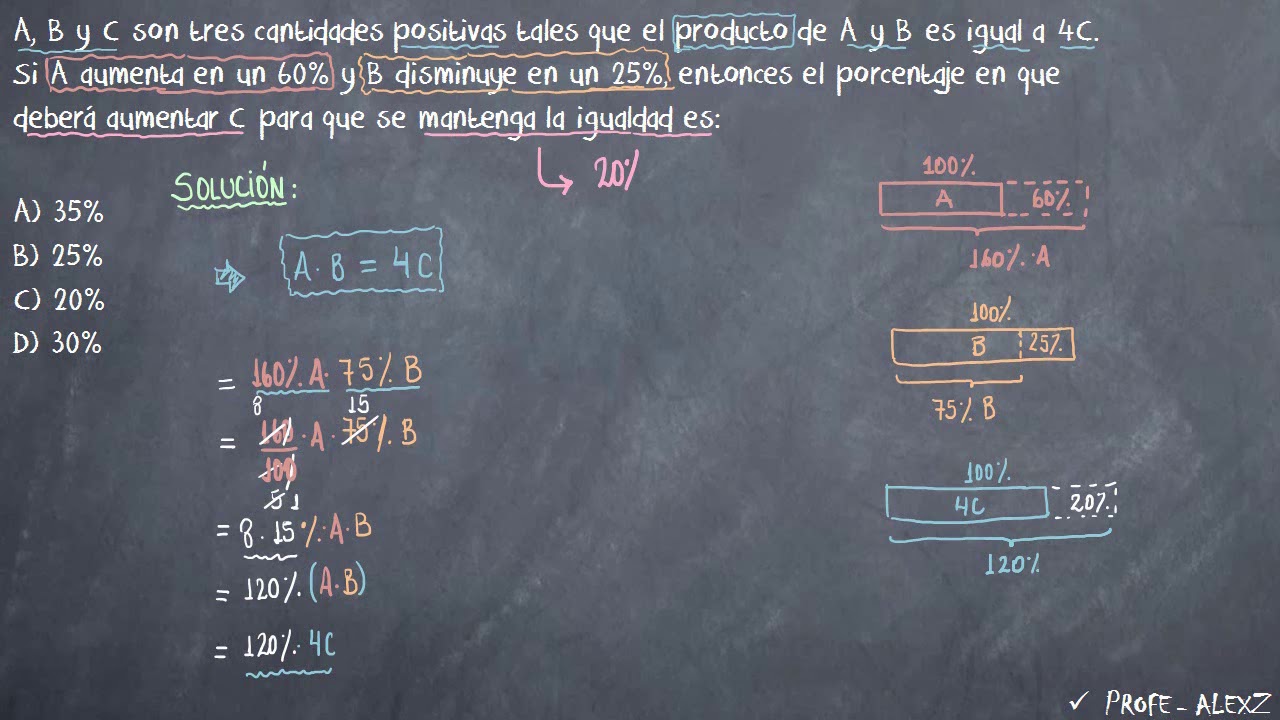 A, B y C son tres cantidades positivas tales que el producto de A y B es igual a 4C.
Si A aumenta en un 60% y B disminuye en un 25%, entonces el porcentaje en que
deberá aumentar C para que se mantenga la igualdad es:
20%
A) 35%
B) 25%
C) 20%
D) 30%
SOLUCIÓN:
A · B = 4C
= 160% · A · 75% B
8 15
= 160/100 · A · 75% · B
5 1
= 8 · 15 % · A · B
= 120% · (A · B)
= 120% · 4C
100%
A 60%
160% · A
100%
B 25%
75% B
100%
4C 20%
120%
✓ PROFE - ALEXZ